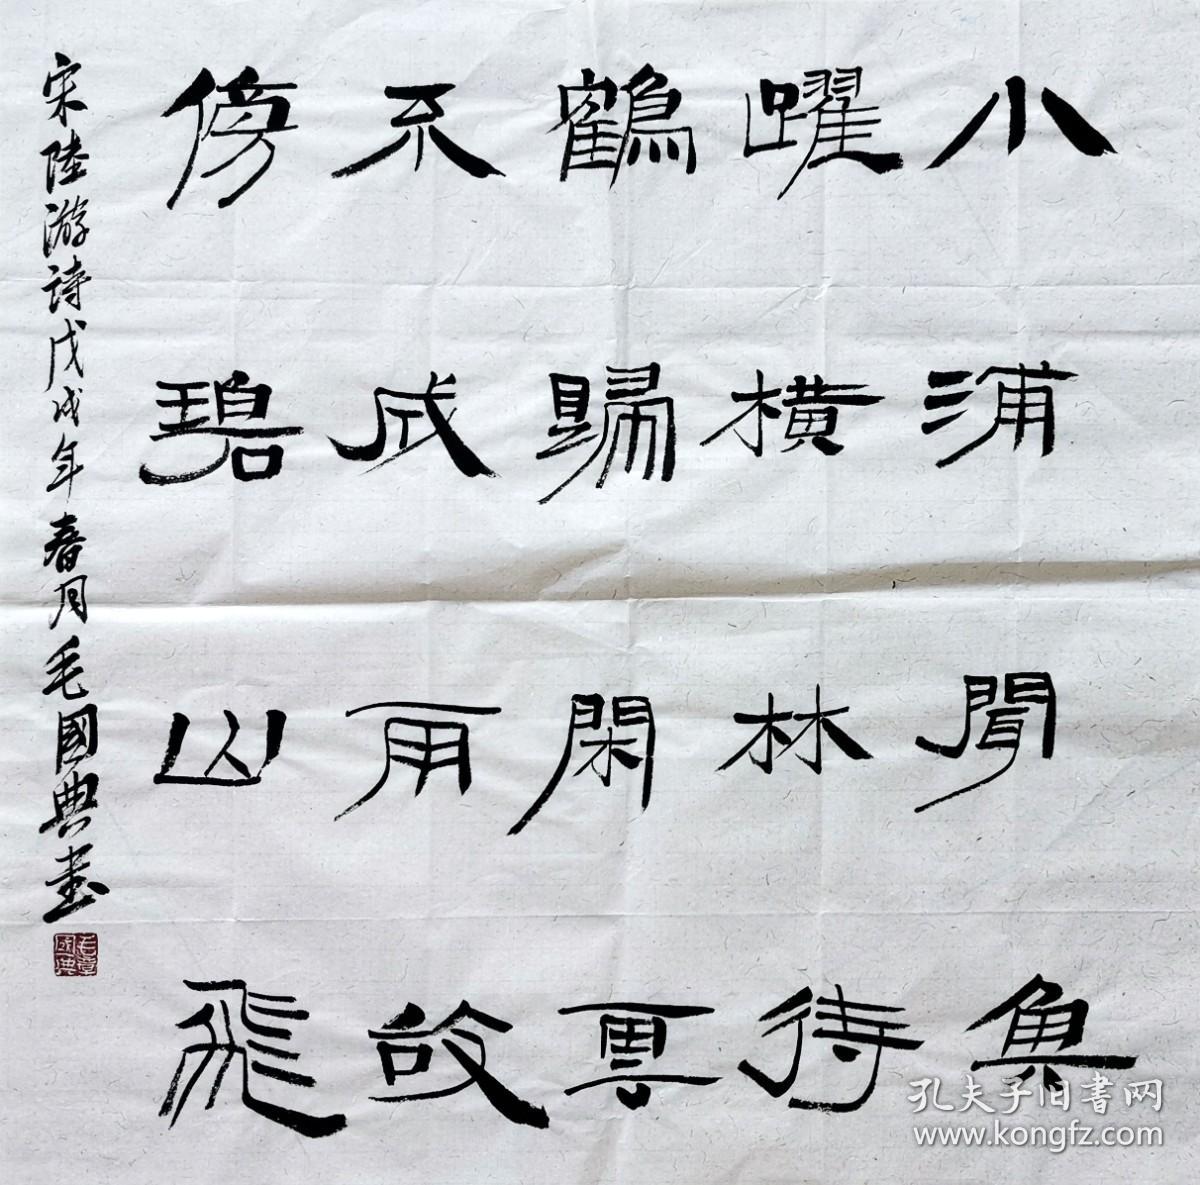 小浦聞魚
躍横林待
鶴歸閑雲
不成雨故
傍碧山飛
宋陸游詩戊戌年春月毛國典書
毛章國典
孔夫子旧書网
www.kongfz.com